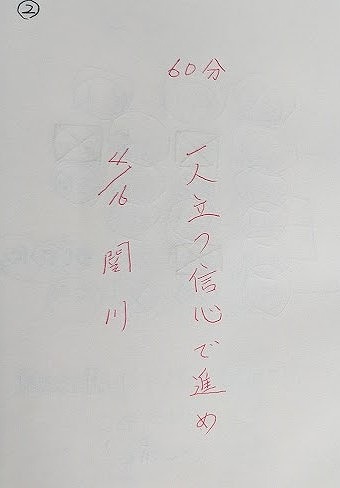 ②
60分
一人立つ信心で進め
4/16 関川